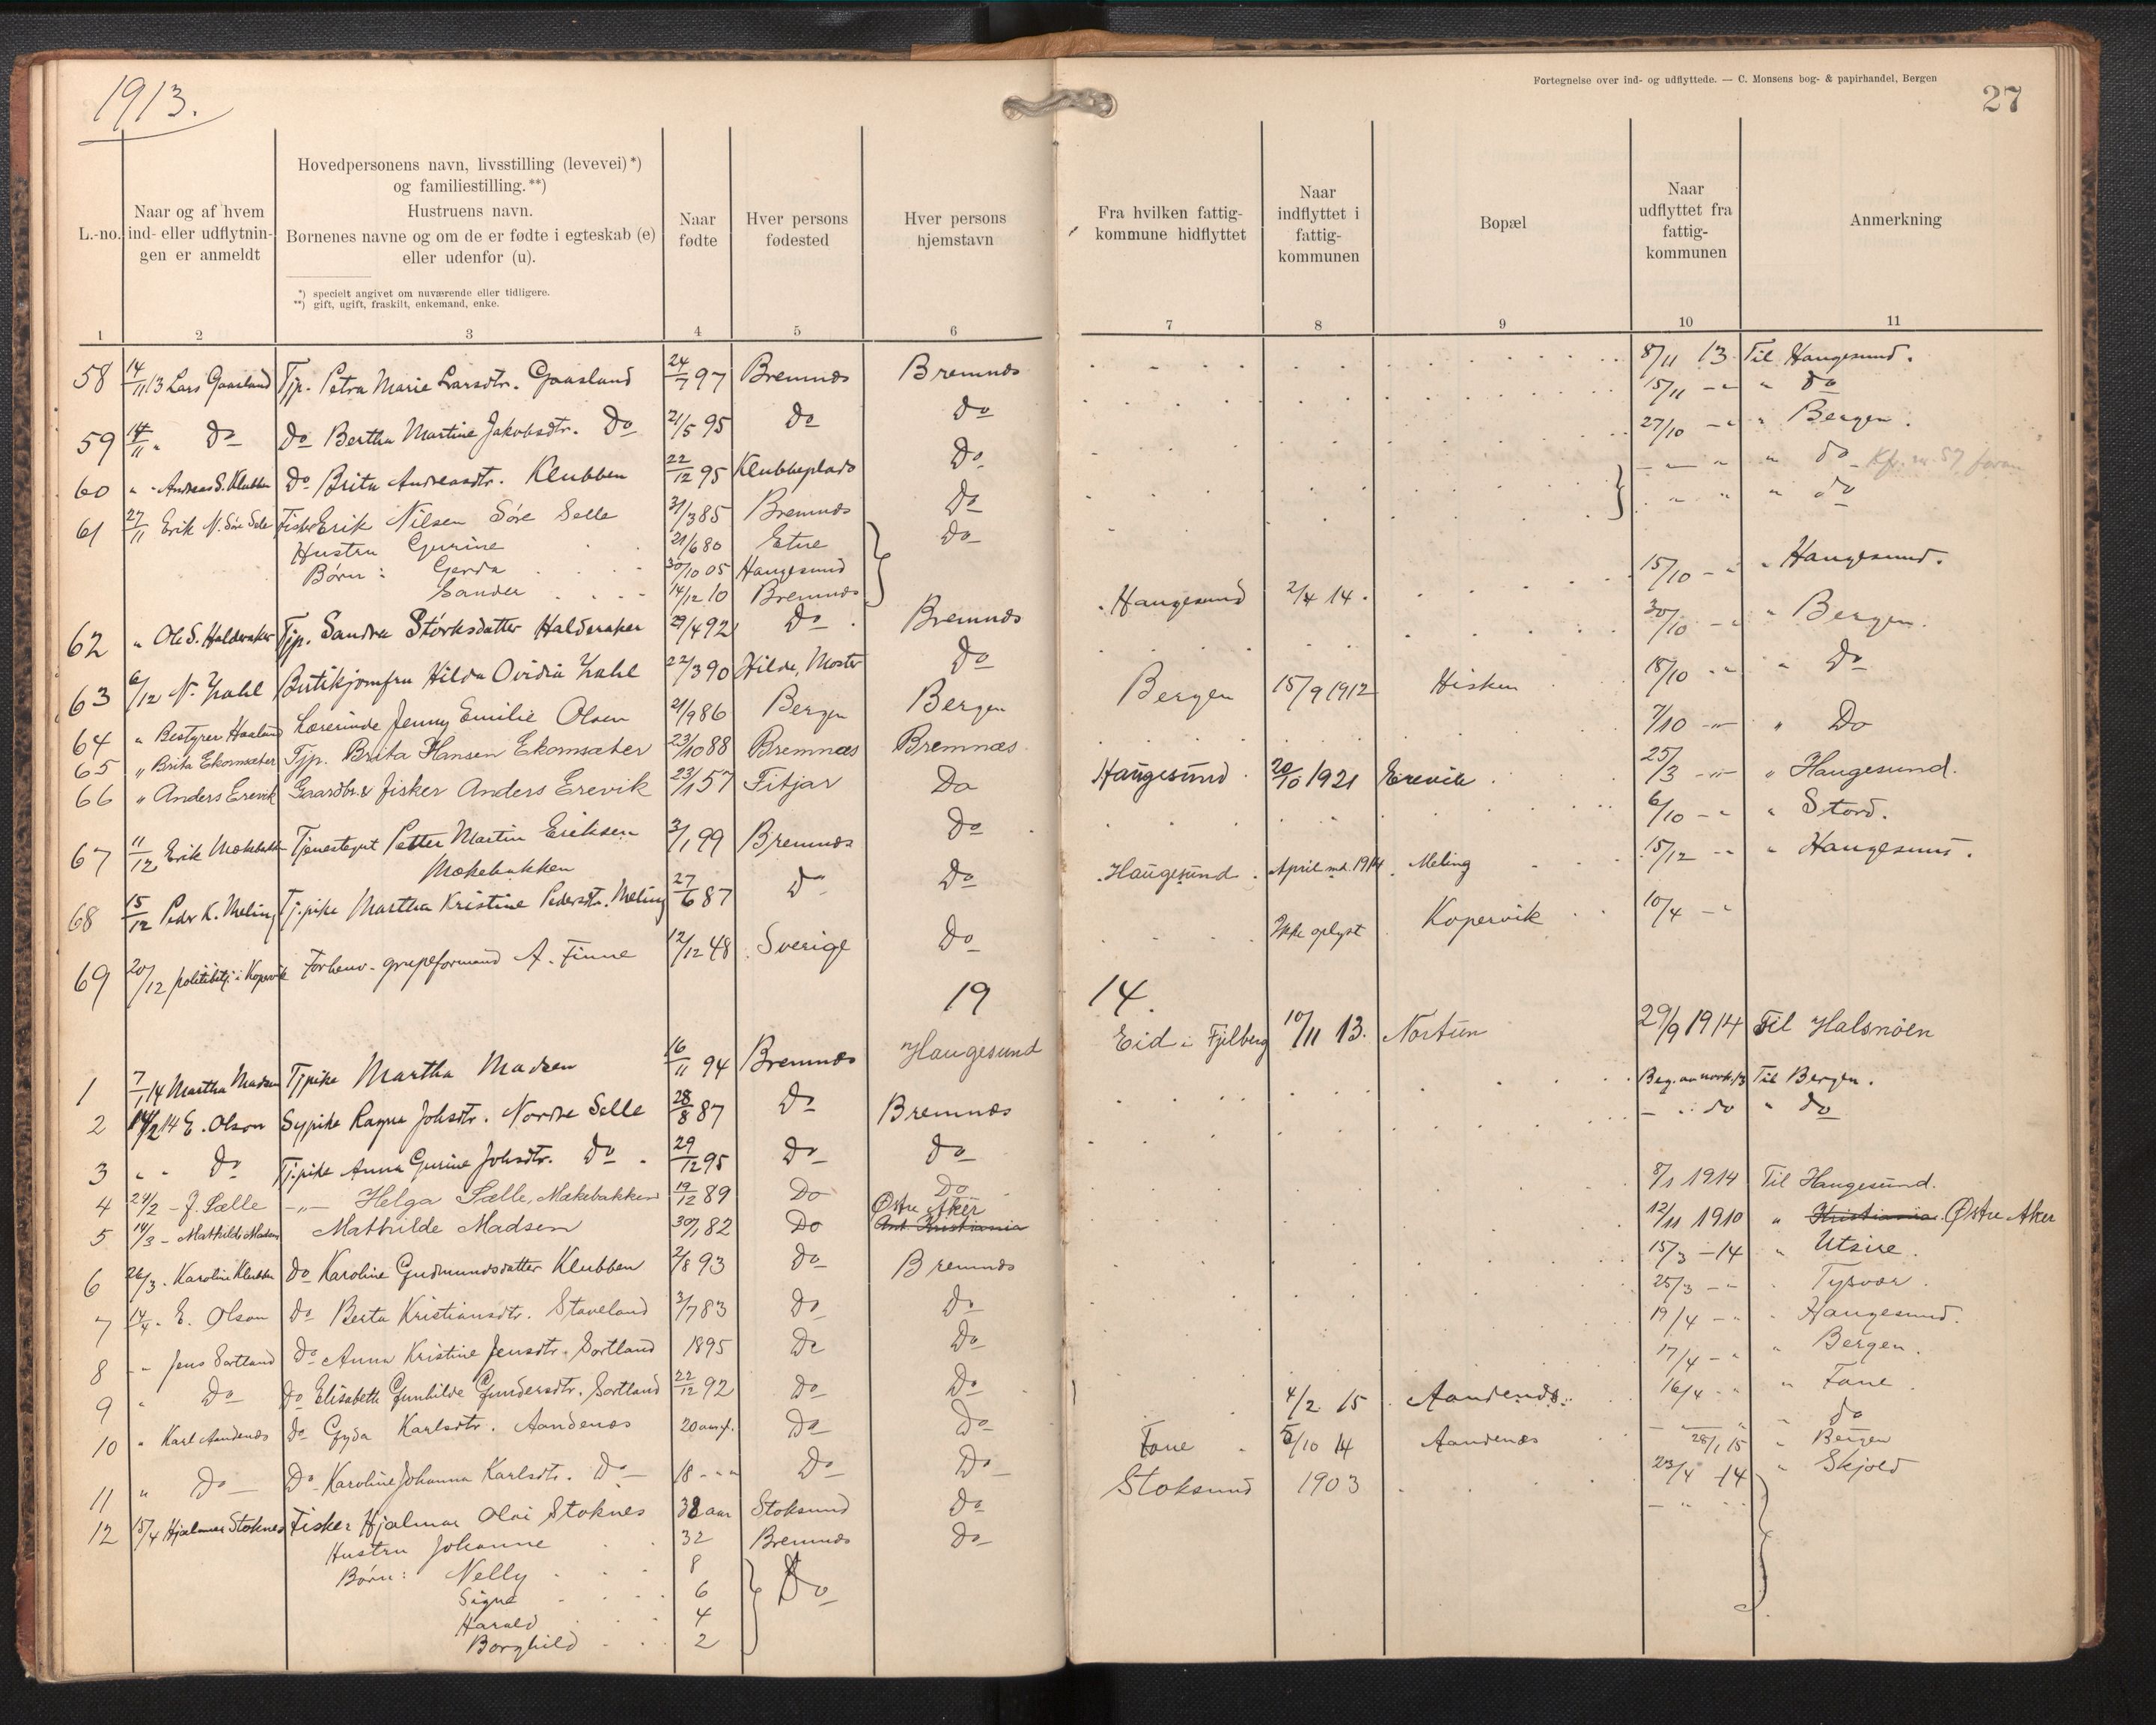 1913.
Fortegnelse over ind- og udflyttede. — C. Monsens bog- & papirhandel, Bergen
27
L.-no.
Naar og af hvem
ind- eller udflytnin-
gen er anmeldt
Hovedpersonens navn, livsstilling (levevei)*)
og familiestilling.**)
Hustruens navn.
Børnenes navne og om de er fødte i egteskab (e)
eller udenfor (u).
*) specielt angivet om nuværende eller tidligere.
**) gift, ugift, fraskilt, enkemand, enke.
Naar
fødte
Hver persons
fødested
Hver persons
hjemstavn
Fra hvilken fattig-
kommune hidflyttet
Naar
indflyttet i
fattig-
kommunen
Bopæl
Naar
udflyttet fra
fattig-
kommunen
Anmerkning
1 2 3 4 5 6 7 8 9 10 11
58 14/11 13 Lars Gaasland Tjp. Petra Marie Larsdtr. Gaasland 24/7 97 Bremnæs Bremnæs 8/11 13 Til Haugesund.
59 14/11 " Do Do Bertha Martine Jakobsdtr. Do 21/5 95 Do Do 15/11 - " " do
60 " - Andreas S. Klubben Do Brita Andreasdtr. Klubben 22/12 95 Klubbeplads Do 27/10 - " " Bergen.
61 27/11 Erik N. Søre Selle Fisker Erik Nilsen Søre Selle 31/3 85 Bremnæs Do - " - " " do Kfr. nr. 57 foran
Hustru Gurine 21/6 80 Etne Do " " " do
Børn: Gerda 30/10 05 Haugesund
Sander 14/12 10 Bremnæs
62 " Ole S. Halderaker Tjp. Sandra Størksdatter Halderaker 29/4 92 Do Bremnæs Haugesund 2/4 14. 15/10 - " " Haugesund.
63 6/12 N. Zahl Butikjomfru Hilda Ovidia Zahl 22/3 90 Hilde, Moster Do 30/10 - " " Bergen.
64 " Bestyrer Haaland Lærerinde Jenny Emilie Olsen 21/9 86 Bergen Bergen Bergen 15/9 1912 Hisken 18/10 - " " Do
65 " Brita Ekornsæter Tjp. Brita Hansen Ekornsæter 23/10 88 Bremnæs Bremnæs 7/10 - " - " Do
66 " Anders Erevik Gaardbr. & fisker Anders Erevik 23/1 57 Fitjar Do Haugesund 20/10 1921 Erevik 25/3 - " - " Haugesund.
67 11/12 Erik Mækebakken Tjenestegut Petter Martin Eriksen 3/1 99 Bremnæs Do 6/10 - " " Stord.
Mækebakken
68 15/12 Peder K. Meling Tj.pike Martha Kristine Pedersdtr. Meling 27/6 87 Do Do Haugesund. April md. 1914 Meling 15/12 - " " Haugesund.
69 20/12 politibetj. i Kopervik Forhenv. grupeformand A. Finne 12/12 48 Sverige Do Ikke oplyst Kopervik 10/4 - "
1914.
1 7/1 14 Martha Madsen Tjpike Martha Madsen 16/11 94 Bremnæs Haugesund Eid i Fjelberg 10/11 13. Nortun 29/9 1914 Til Halsnöen
2 14/2 14 E. Olson Sypike Ragna Johsdtr. Nordre Selle 28/8 87 Do Bremnæs Beg. av novbr. 13 Til Bergen.
3 " - Do Tj.pike Anna Gurine Johsdtr. Do 29/12 95 Do Do - " do " do
4 24/2 - J. Sælle - " - Helga Sælle, Mækebakken 19/12 89 Do Do 8/1 1914 Til Haugesund.
5 14/3 - Mathilde Madsen Mathilde Madsen 30/1 82 Do Østre Aker Kristiania 12/11 1910 " Kristiania. Østre Aker
6 26/3. Karoline Klubben Do Karoline Gudmundsdatter Klubben 2/8 93 Do Bremnæs 15/3 - 14 " Utsire.
7 14/4. E. Olson Do Berta Kristiansdtr. Staveland 3/7 83 Do Do 25/3 - " Tysvær.
8 - " Jens Sortland Do Anna Kristine Jensdtr. Sortland 1895 Do Do 19/4 - " Haugesund.
9 " Do Do Elisabeth Gunhilde Gundersdtr. Sortland 22/12 92 Do Do 17/4 - " " Bergen.
10 " Karl Aandenæs Do Gyda Karlsdtr. Aandenæs 20 Do Do 4/2 15 Aandenæs. 16/4 - " " Fane
11 " Do Do Karoline Johanna Karlsdtr. Do 18 - " Do Do Fane 5/10 14 Aandenæs - " " do
28/1 15 " Bergen
12 15/4 Hjalmar Stoknes Fisker Hjalmar Olai Stoknes 38 aar Stoksund Do Stoksund 1903 23/4 - 14 " Skjold
Hustru Johanne 32 Bremnæs Do - " - "
Børn: Nelly 8
Signe 6 Do
Harald 4
Borghild 2